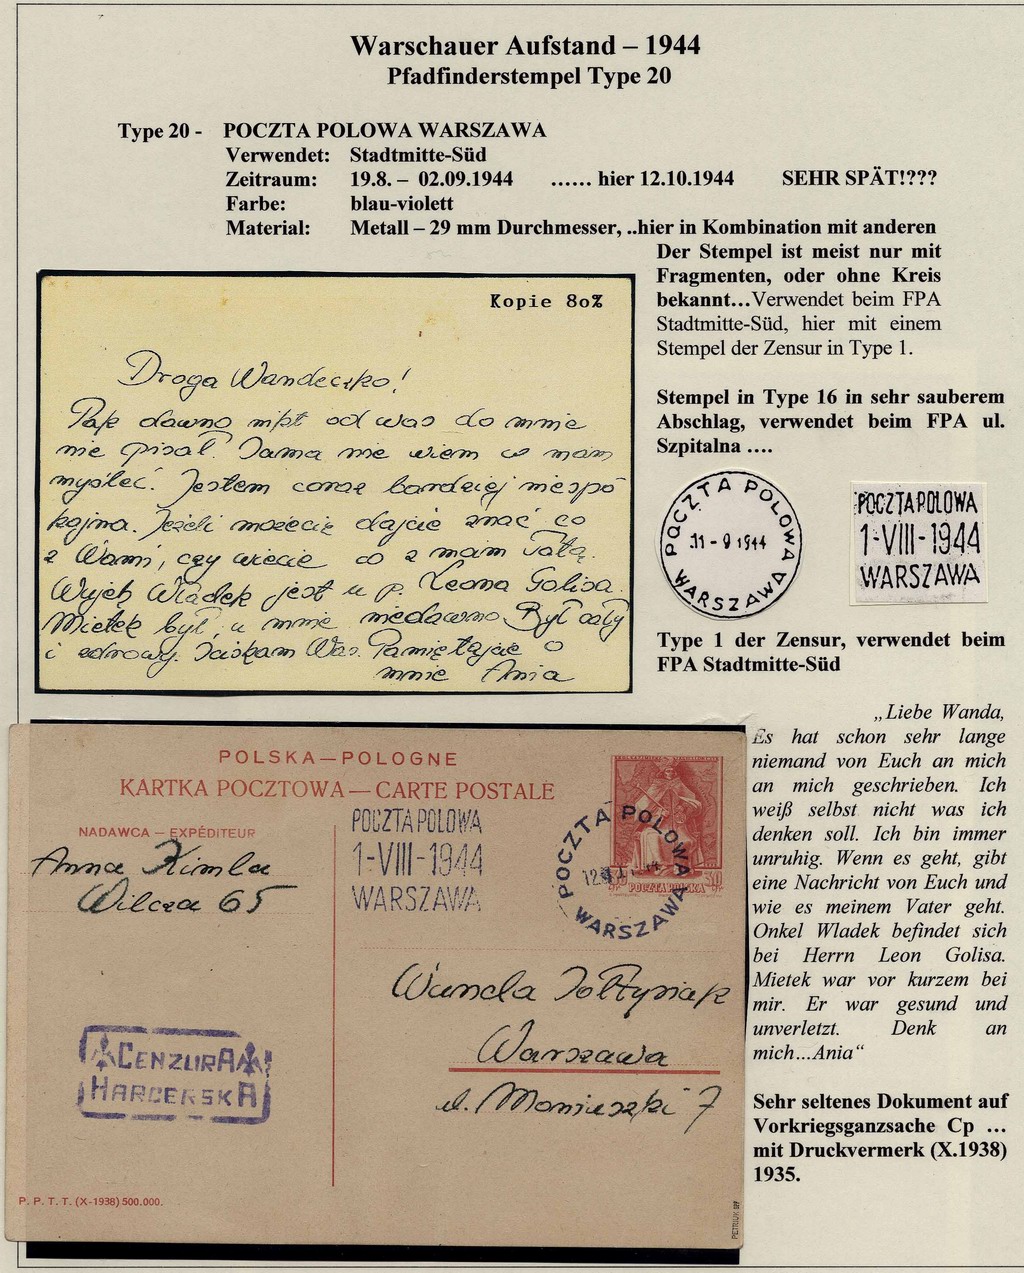 Warschauer Aufstand – 1944
Pfadfinderstempel Type 20
Type 20 - POCZTA POLOWA WARSZAWA
Verwendet: Stadtmitte-Süd
Zeitraum: 19.8. – 02.09.1944 ...... hier 12.10.1944 SEHR SPÄT!???
Farbe: blau-violett
Material: Metall – 29 mm Durchmesser, ..hier in Kombination mit anderen
Der Stempel ist meist nur mit
Fragmenten, oder ohne Kreis
bekannt...Verwendet beim FPA
Stadtmitte-Süd, hier mit einem
Stempel der Zensur in Type 1.
Kopie 80%
Droga Wandeczko!
Tak dawno nikt od was do mnie
nie pisał. Sama nie wiem co mam
myśleć. Jestem coraz bardziej niespo
kojna. Jeżeli możecie dajcie znać co
z Wami, czy wiecie co z moim Tatą.
Wujek Władek jest u p. Leona Golisa.
Mietek był u mnie niedawno. Był cały
i zdrowy. Ściskam Was. Pamiętajcie o
mnie Ania
Stempel in Type 16 in sehr sauberem
Abschlag, verwendet beim FPA ul.
Szpitalna ....
POCZTA POLOWA
11 - 9 1944
WARSZAWA
POCZTA POLOWA
1-VIII-1944
WARSZAWA
Type 1 der Zensur, verwendet beim
FPA Stadtmitte-Süd
„Liebe Wanda,
Es hat schon sehr lange
niemand von Euch an mich
an mich geschrieben. Ich
weiß selbst nicht was ich
denken soll. Ich bin immer
unruhig. Wenn es geht, gibt
eine Nachricht von Euch und
wie es meinem Vater geht.
Onkel Wladek befindet sich
bei Herrn Leon Golisa.
Mietek war vor kurzem bei
mir. Er war gesund und
unverletzt. Denk an
mich...Ania"
Sehr seltenes Dokument auf
Vorkriegsganzsache Cp ...
mit Druckvermerk (X.1938)
1935.
POLSKA—POLOGNE
KARTKA POCZTOWA — CARTE POSTALE
NADAWCA — EXPÉDITEUR
Anna Kimla
Wilcza 65
POCZTA POLOWA
1-VIII-1944
WARSZAWA
POCZTA POLOWA
WARSZAWA
30
POCZTA POLSKA
Wanda Sołtysiak
Warszawa
ul. Moniuszki 7
CENZURA
HARCERSKA
P. P. T. T. (X-1938) 500.000.